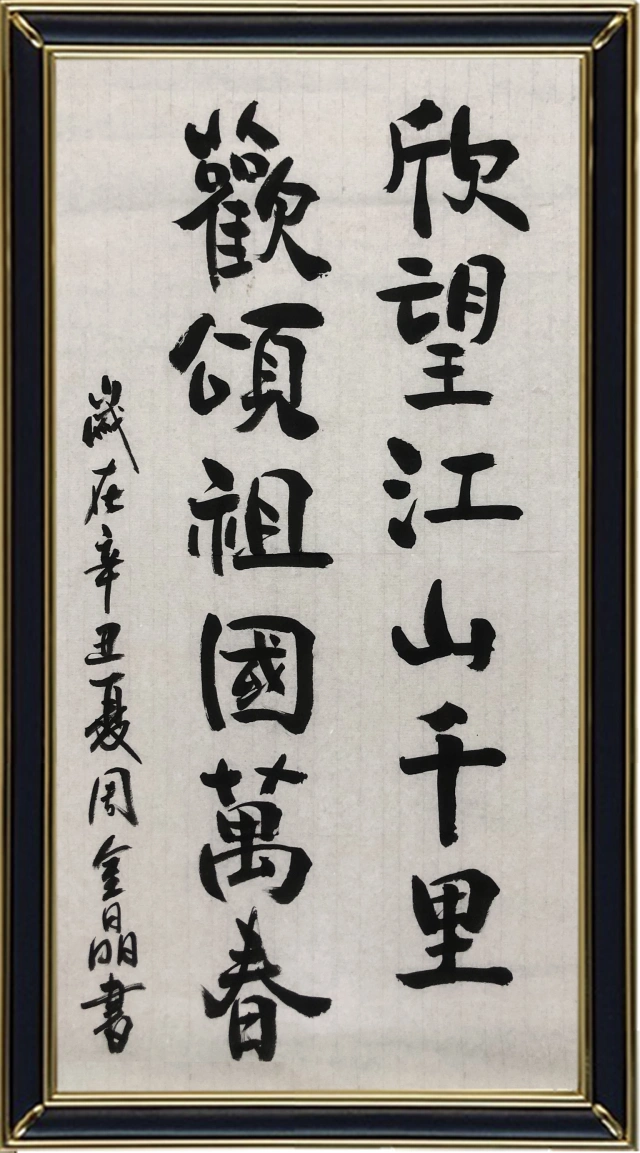 欣望江山千里
歡頌祖國萬春
歲在辛丑夏周金晶書